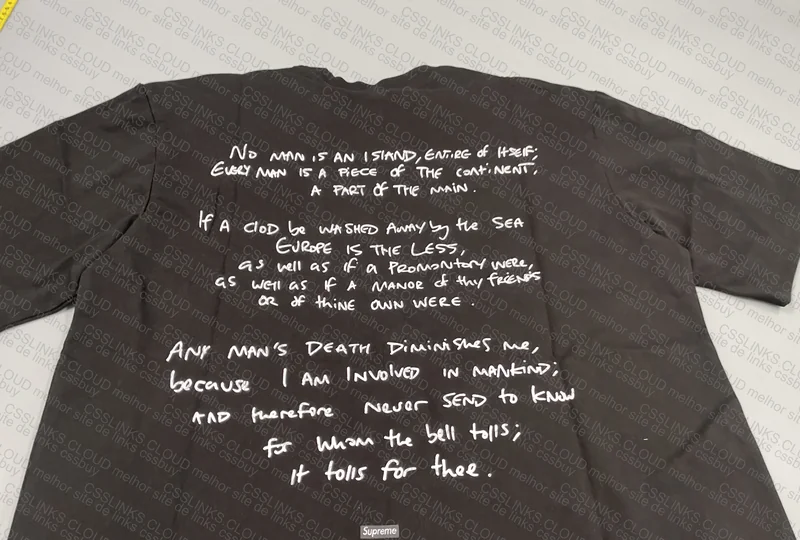 No MAN IS AN ISLAND, ENTIRE of ITSELF;
EVERY MAN IS A PIECE OF THE CONTINENT,
A PART OF THE MAIN.
If A CLOD be WASHED AWAY by the SEA
EUROPE IS THE LESS,
as well as if a PROMONTORY WERE,
as well as if A MANOR of thy FRIENDS
OR of thine OWN WERE.
ANY MAN'S DEATH DiminisHes me,
because I AM INVOLVED IN MANKIND;
AND therefore never SEND to KNOW
for whom the bell tolls;
It tolls for thee.
Supreme
CSSLINKS.CLOUD melhor site de links cssbuy